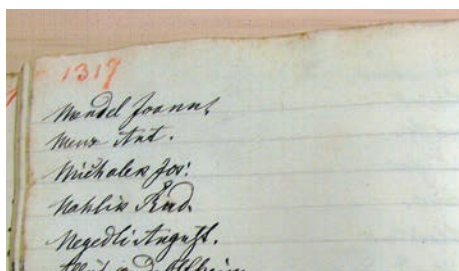 1317
Mendel Joann.
Menz Ant.
Michalek Jos:
Kohlik Rud.
Negedli August.